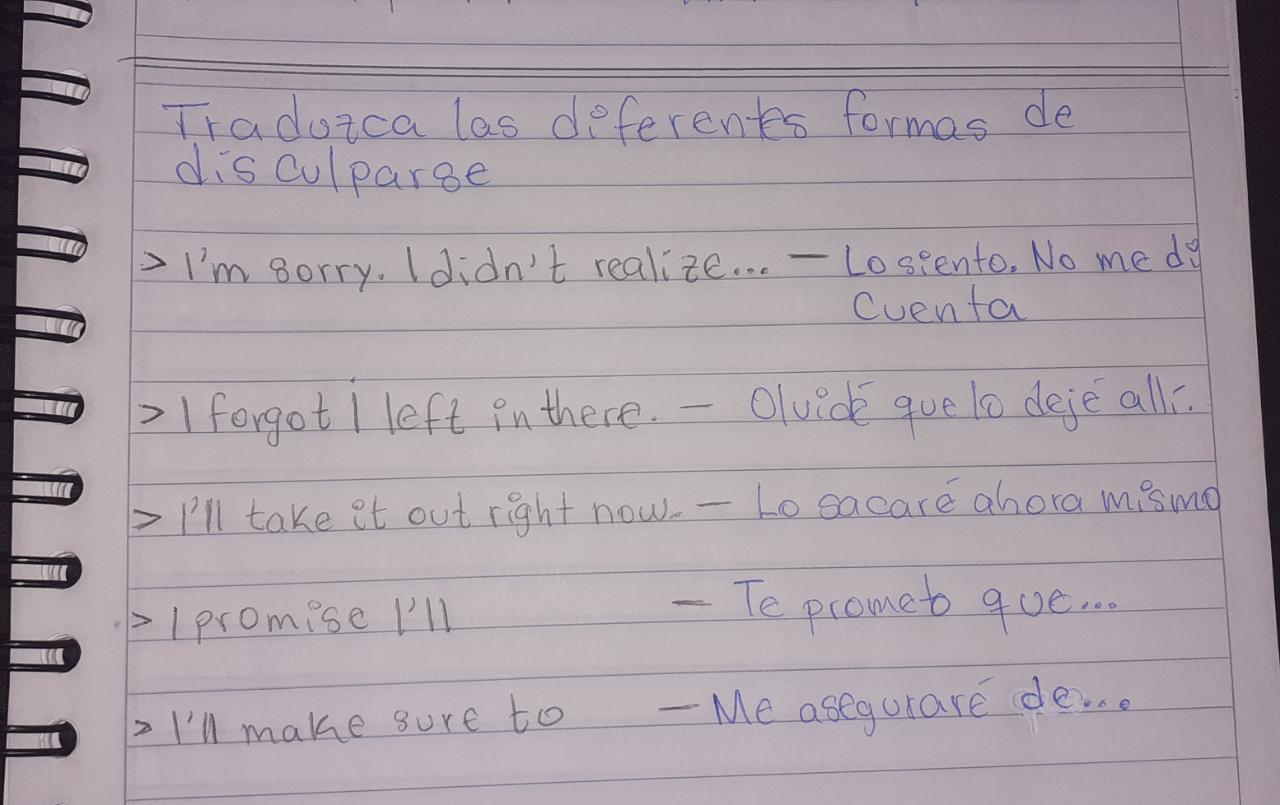 Traduzca las diferentes formas de
disculparse
> I'm sorry. I didn't realize... — Lo siento. No me di
Cuenta
> I forgot I left in there. — Olvidé que lo dejé allí.
> I'll take it out right now. — Lo sacaré ahora mismo
> I promise I'll — Te prometo que...
> I'll make sure to — Me aseguraré de...